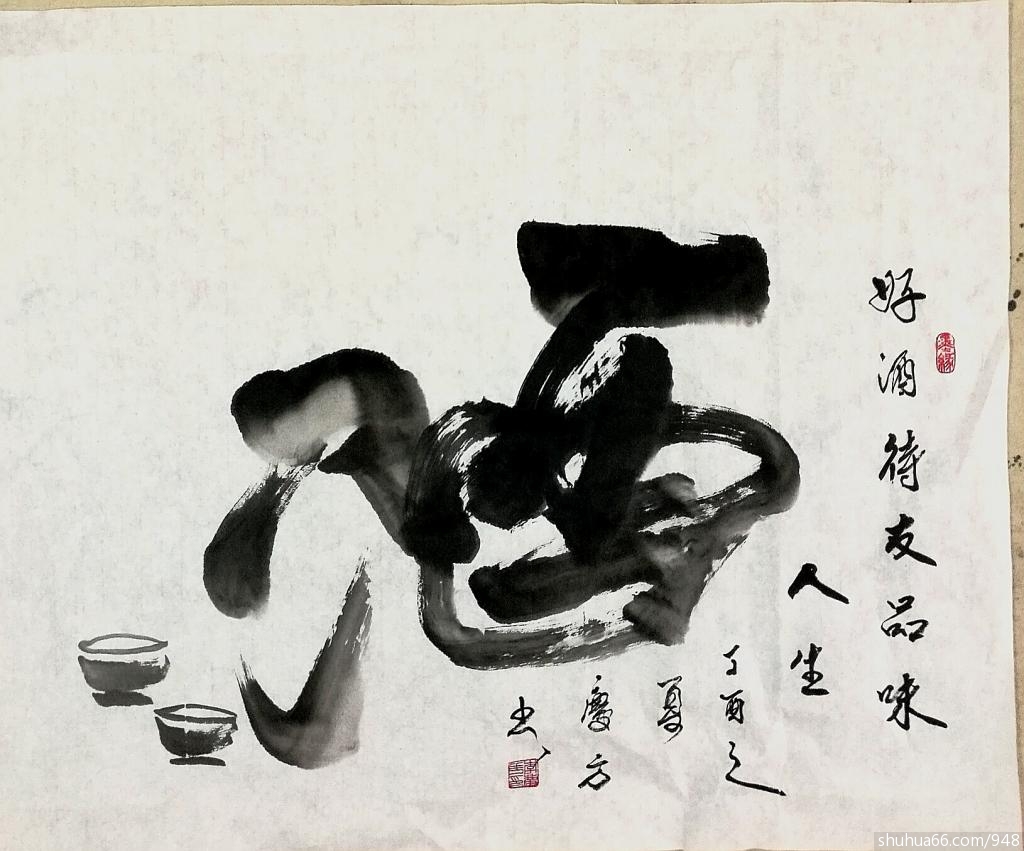 好酒待友品味
人生
丁酉之
夏
慶方
书
酒
墨缘
shuhua66.com/948